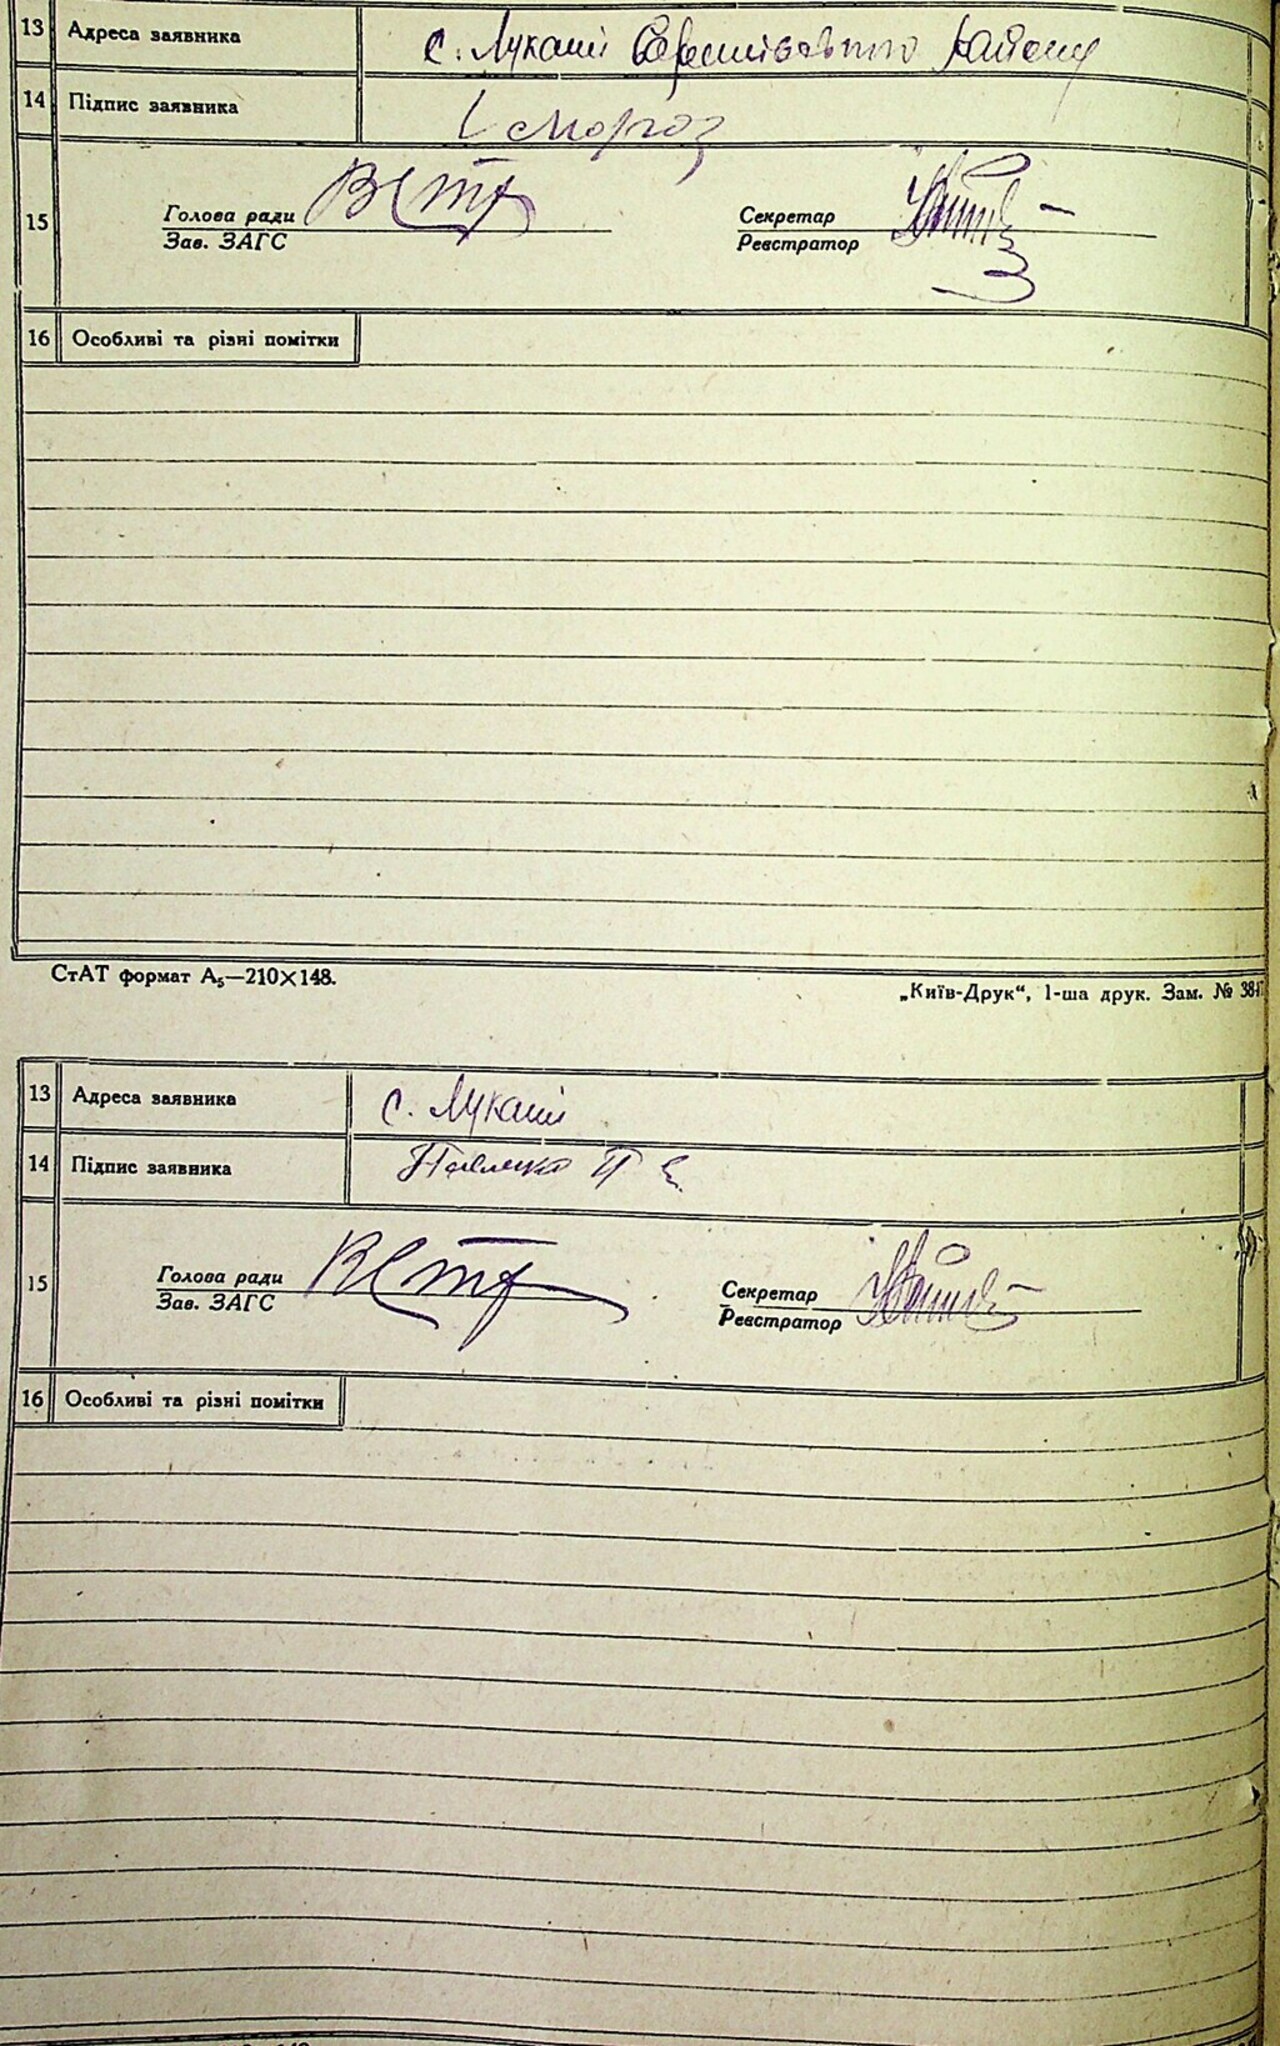 13 Адреса заявника с. Лукаші Баришівського району
14 Підпис заявника Мороз
15 Голова ради Секретар
Зав. ЗАГС Реєстратор
16 Особливі та різні помітки
СтАТ формат А₅—210×148.
„Київ-Друк“, 1-ша друк. Зам. №
13 Адреса заявника с. Лукаші
14 Підпис заявника
15 Голова ради Секретар
Зав. ЗАГС Реєстратор
16 Особливі та різні помітки